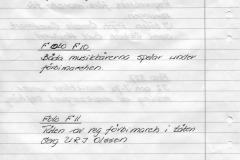 Foto F 10
Båda musikkårerna spelar under
förbimarschen.
Foto F 11
Täten av reg förbimarsch i täten
Övlt U R J Olsson